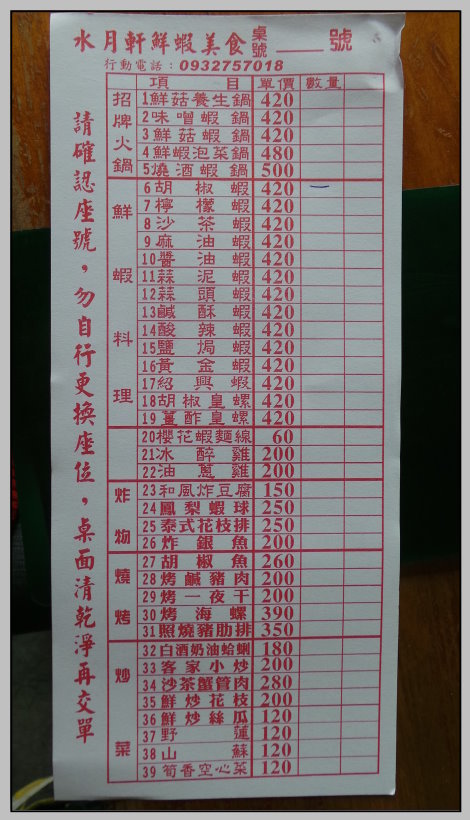 水月軒鮮蝦美食 桌號 號
行動電話：0932757018
請確認座號，勿自行更換座位，桌面清乾淨再交單
項目 單價 數量
招牌火鍋
1鮮菇養生鍋 420
2味噌蝦鍋 420
3鮮菇蝦鍋 420
4鮮蝦泡菜鍋 480
5燒酒蝦鍋 500
鮮蝦料理
6胡椒蝦 420 一
7檸檬蝦 420
8沙茶蝦 420
9麻油蝦 420
10醬油蝦 420
11蒜泥蝦 420
12蒜頭蝦 420
13鹹酥蝦 420
14酸辣蝦 420
15鹽焗蝦 420
16黃金蝦 420
17紹興蝦 420
18胡椒皇螺 420
19薑酢皇螺 420
20櫻花蝦麵線 60
21冰醉雞 200
22油蔥雞 200
炸物
23和風炸豆腐 150
24鳳梨蝦球 250
25泰式花枝排 250
26炸銀魚 200
燒烤
27胡椒魚 260
28烤鹹豬肉 200
29烤一夜干 200
30烤海螺 390
31照燒豬肋排 350
炒菜
32白酒奶油蛤蜊 180
33客家小炒 200
34沙茶蟹管肉 280
35鮮炒花枝 200
36鮮炒絲瓜 120
37野蓮 120
38山蘇 120
39筍香空心菜 120